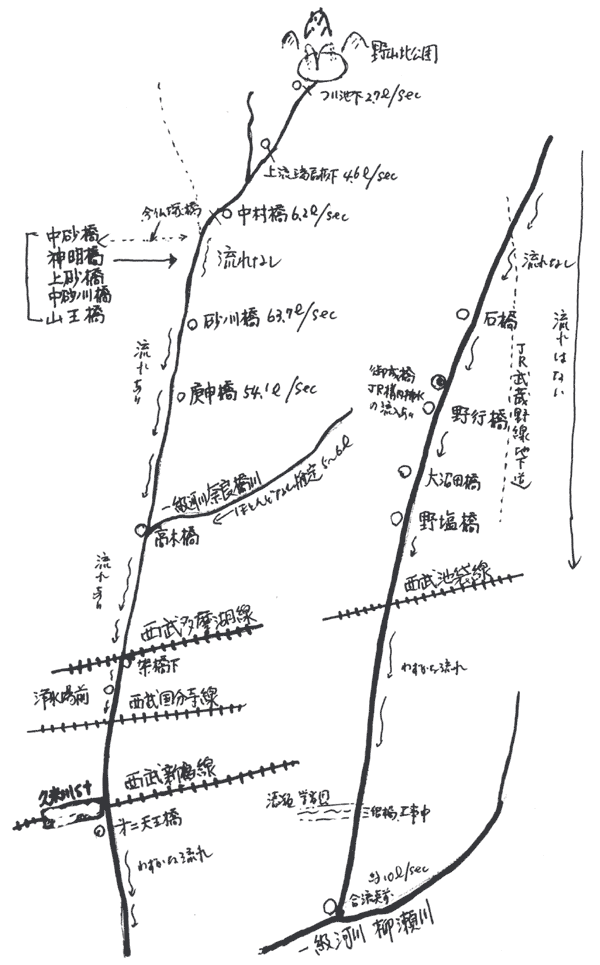 野山北公園
2.7ℓ/sec
4.6ℓ/sec
中村橋 6.2ℓ/sec
中砂橋
神明橋
上砂橋
中砂川橋
山王橋
流れなし
砂川橋 63.7ℓ/sec
流れあり
庚申橋 54.1ℓ/sec
一級河川奈良橋川
ほとんどなし推定5〜6ℓ
高木橋
流れあり
西武多摩湖線
架橋下
浄水場前
西武国分寺線
西武新宿線
久米川St
才二天王橋
わずかな流れ
流れなし
石橋
流れはない
JR武蔵野線地下道
御成橋
JR構内排水
の流入あり
野行橋
大沼田橋
野塩橋
西武池袋線
わずかな流れ
工事中
約10ℓ/sec
合流点前
一級河川 柳瀬川